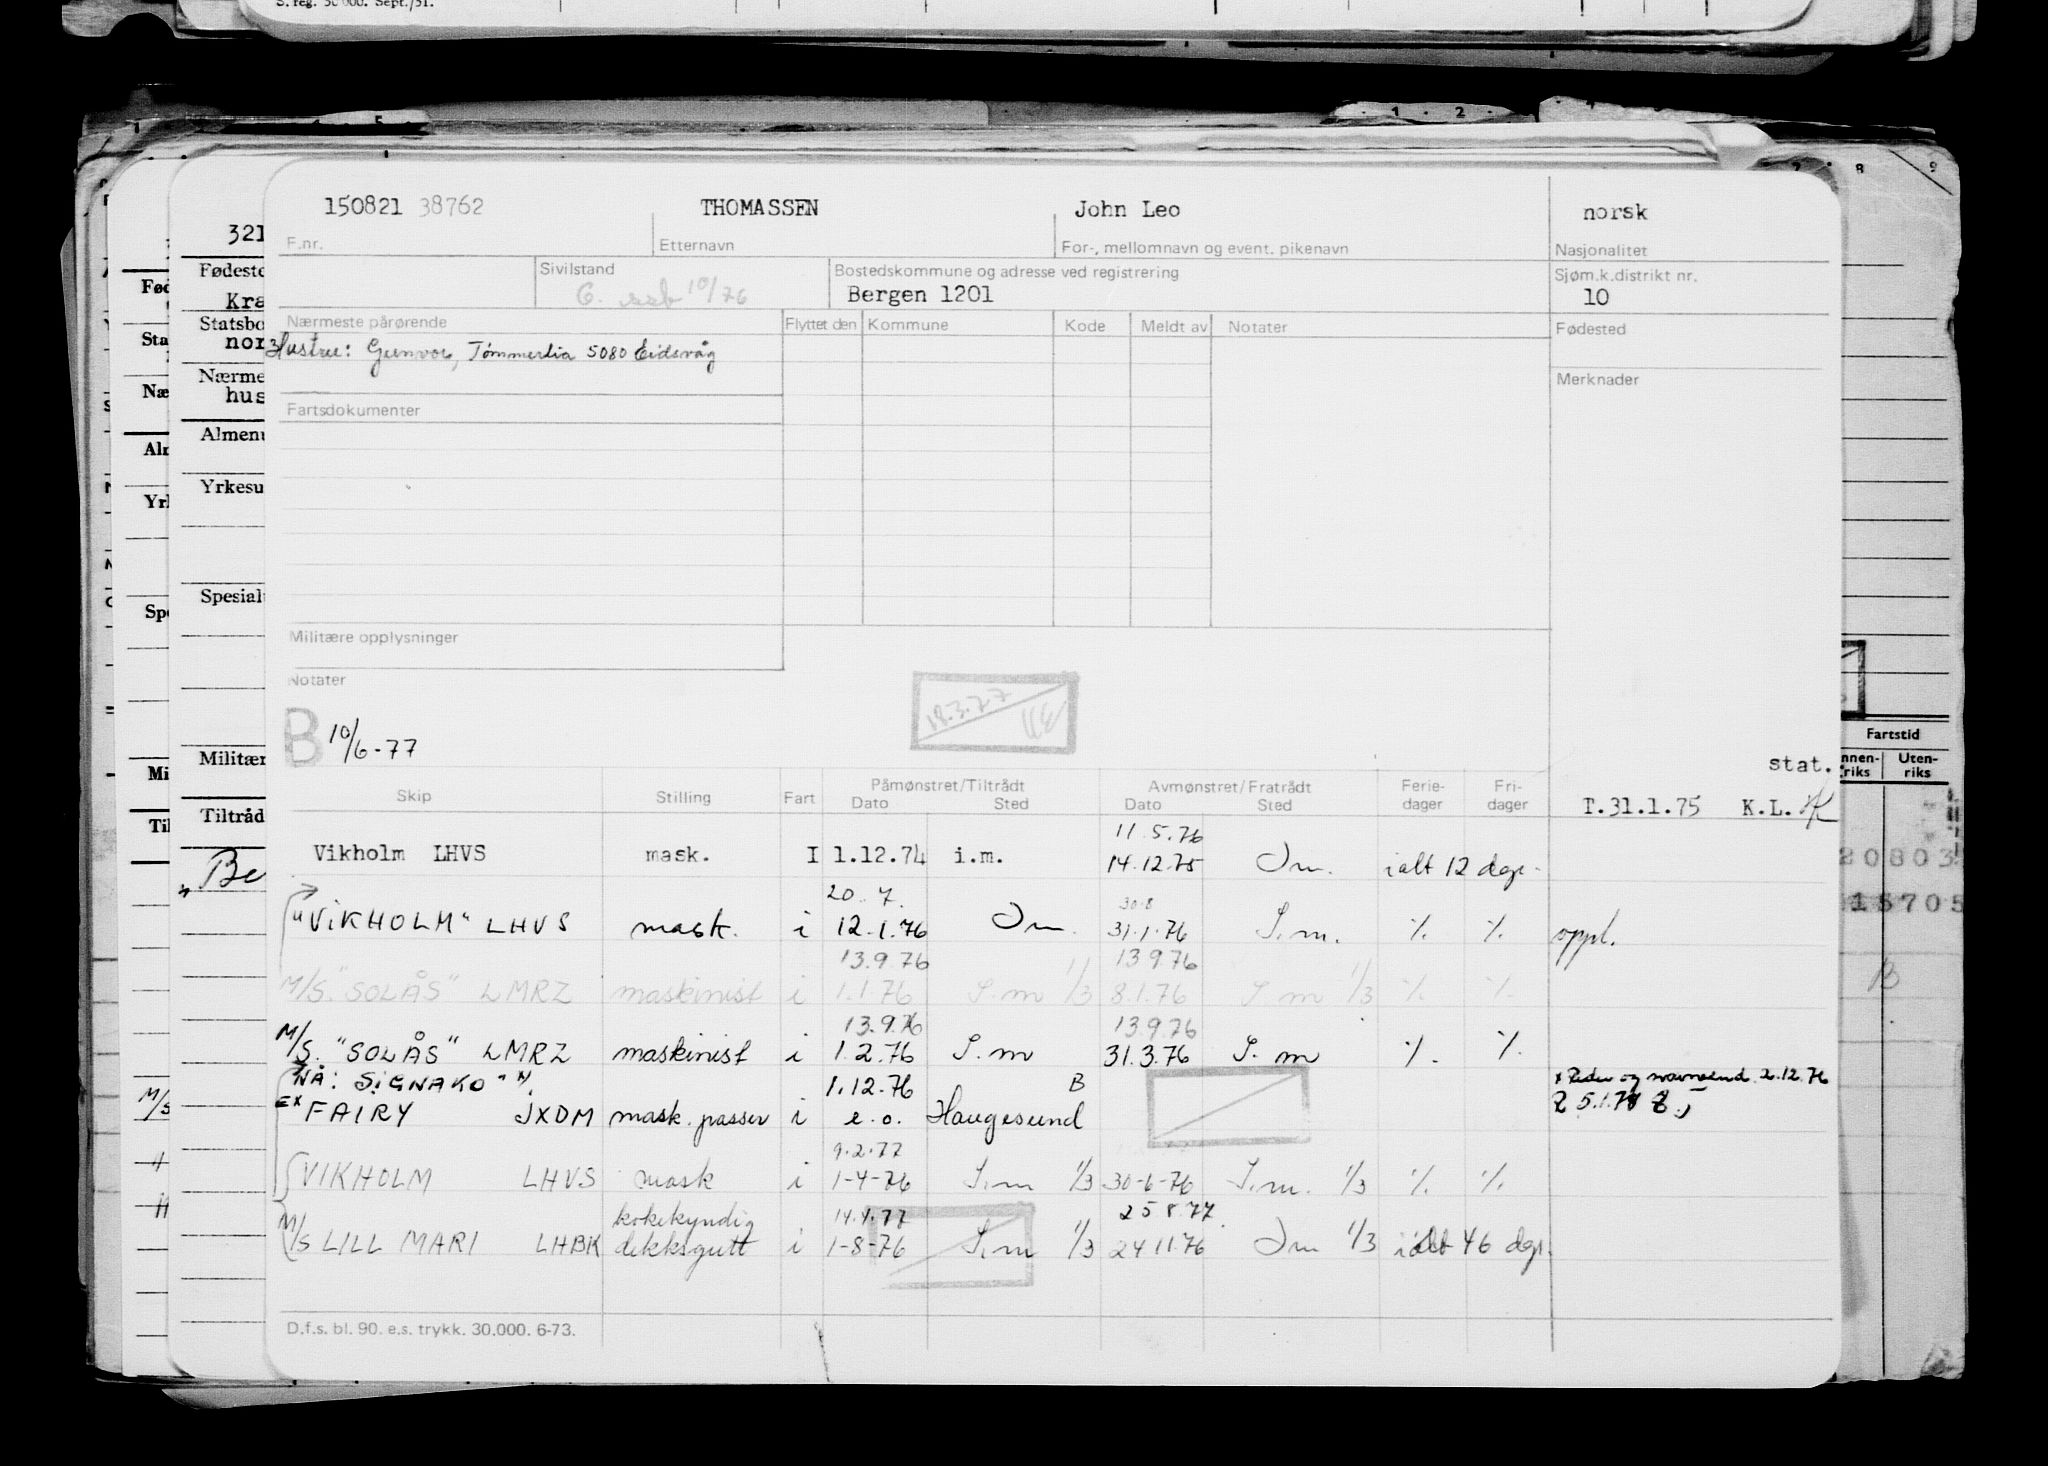 S. reg. 30 000. Sept./51.
150821 38762 THOMASSEN John Leo norsk
F.nr. Etternavn For-, mellomnavn og event. pikenavn Nasjonalitet
Sivilstand Bostedskommune og adresse ved registrering Sjøm.k.distrikt nr.
G. ssb 10/76 Bergen 1201 10
Nærmeste pårørende Flyttet den Kommune Kode Meldt av Notater Fødested
Hustru: Gunvor, Tømmerlia 5080 Eidsvåg
Merknader
Fartsdokumenter
Militære opplysninger
Notater
18.3.77
B 10/6-77
stat.
Skip Stilling Fart Påmønstret/Tiltrådt Avmønstret/Fratrådt Ferie- Fri-
Dato Sted Dato Sted dager dager
T.31.1.75 K.L.
11.5.76
Vikholm LHVS mask. I 1.12.74 i.m. 14.12.75 Im. ialt 12 dgr.
20.7. 30-8
"VIKHOLM" LHVS mask. i 12.1.76 Im. 31.1.76 S.m. % % oppl.
13.9.76 13 9 76
M/S. "SOLÅS" LMRZ maskinist i 1.1.76 S.m 1/3 8.1.76 S m 1/3 % %
13.9.76 13.9.76
M/S. "SOLÅS" LMRZ maskinist i 1.2.76 S.m 31.3.76 S.m % %
NÅ: SIGNAKO" 1.12.76 B x Reder og navneend. 2.12.76
EX FAIRY JXDM mask.passer i e.o. Haugesund
9.2.77
VIKHOLM LHVS mask i 1-4-76 S.m 1/3 30-6-76 S.m. 1/3 % %
kokekyndig 14.4.77 25 8.77
M/S LILL MARI LHBK dekksgutt i 1-8-76 S.m 1/3 24 11.76 Im 1/3 ialt 46 dgr.
D.f.s. bl. 90. e.s. trykk. 30.000. 6-73.
321
Fødeste
Kra
Statsbo
nor
Nærme
hus
Almenu
Yrkesu
Spesial
Militær
Tiltråd
Be
Fød
Sta
Næ
Aln
Yrl
Spe
Mi
Til
M/S
Fartstid
nnen- Uten-
riks riks
20803
15705